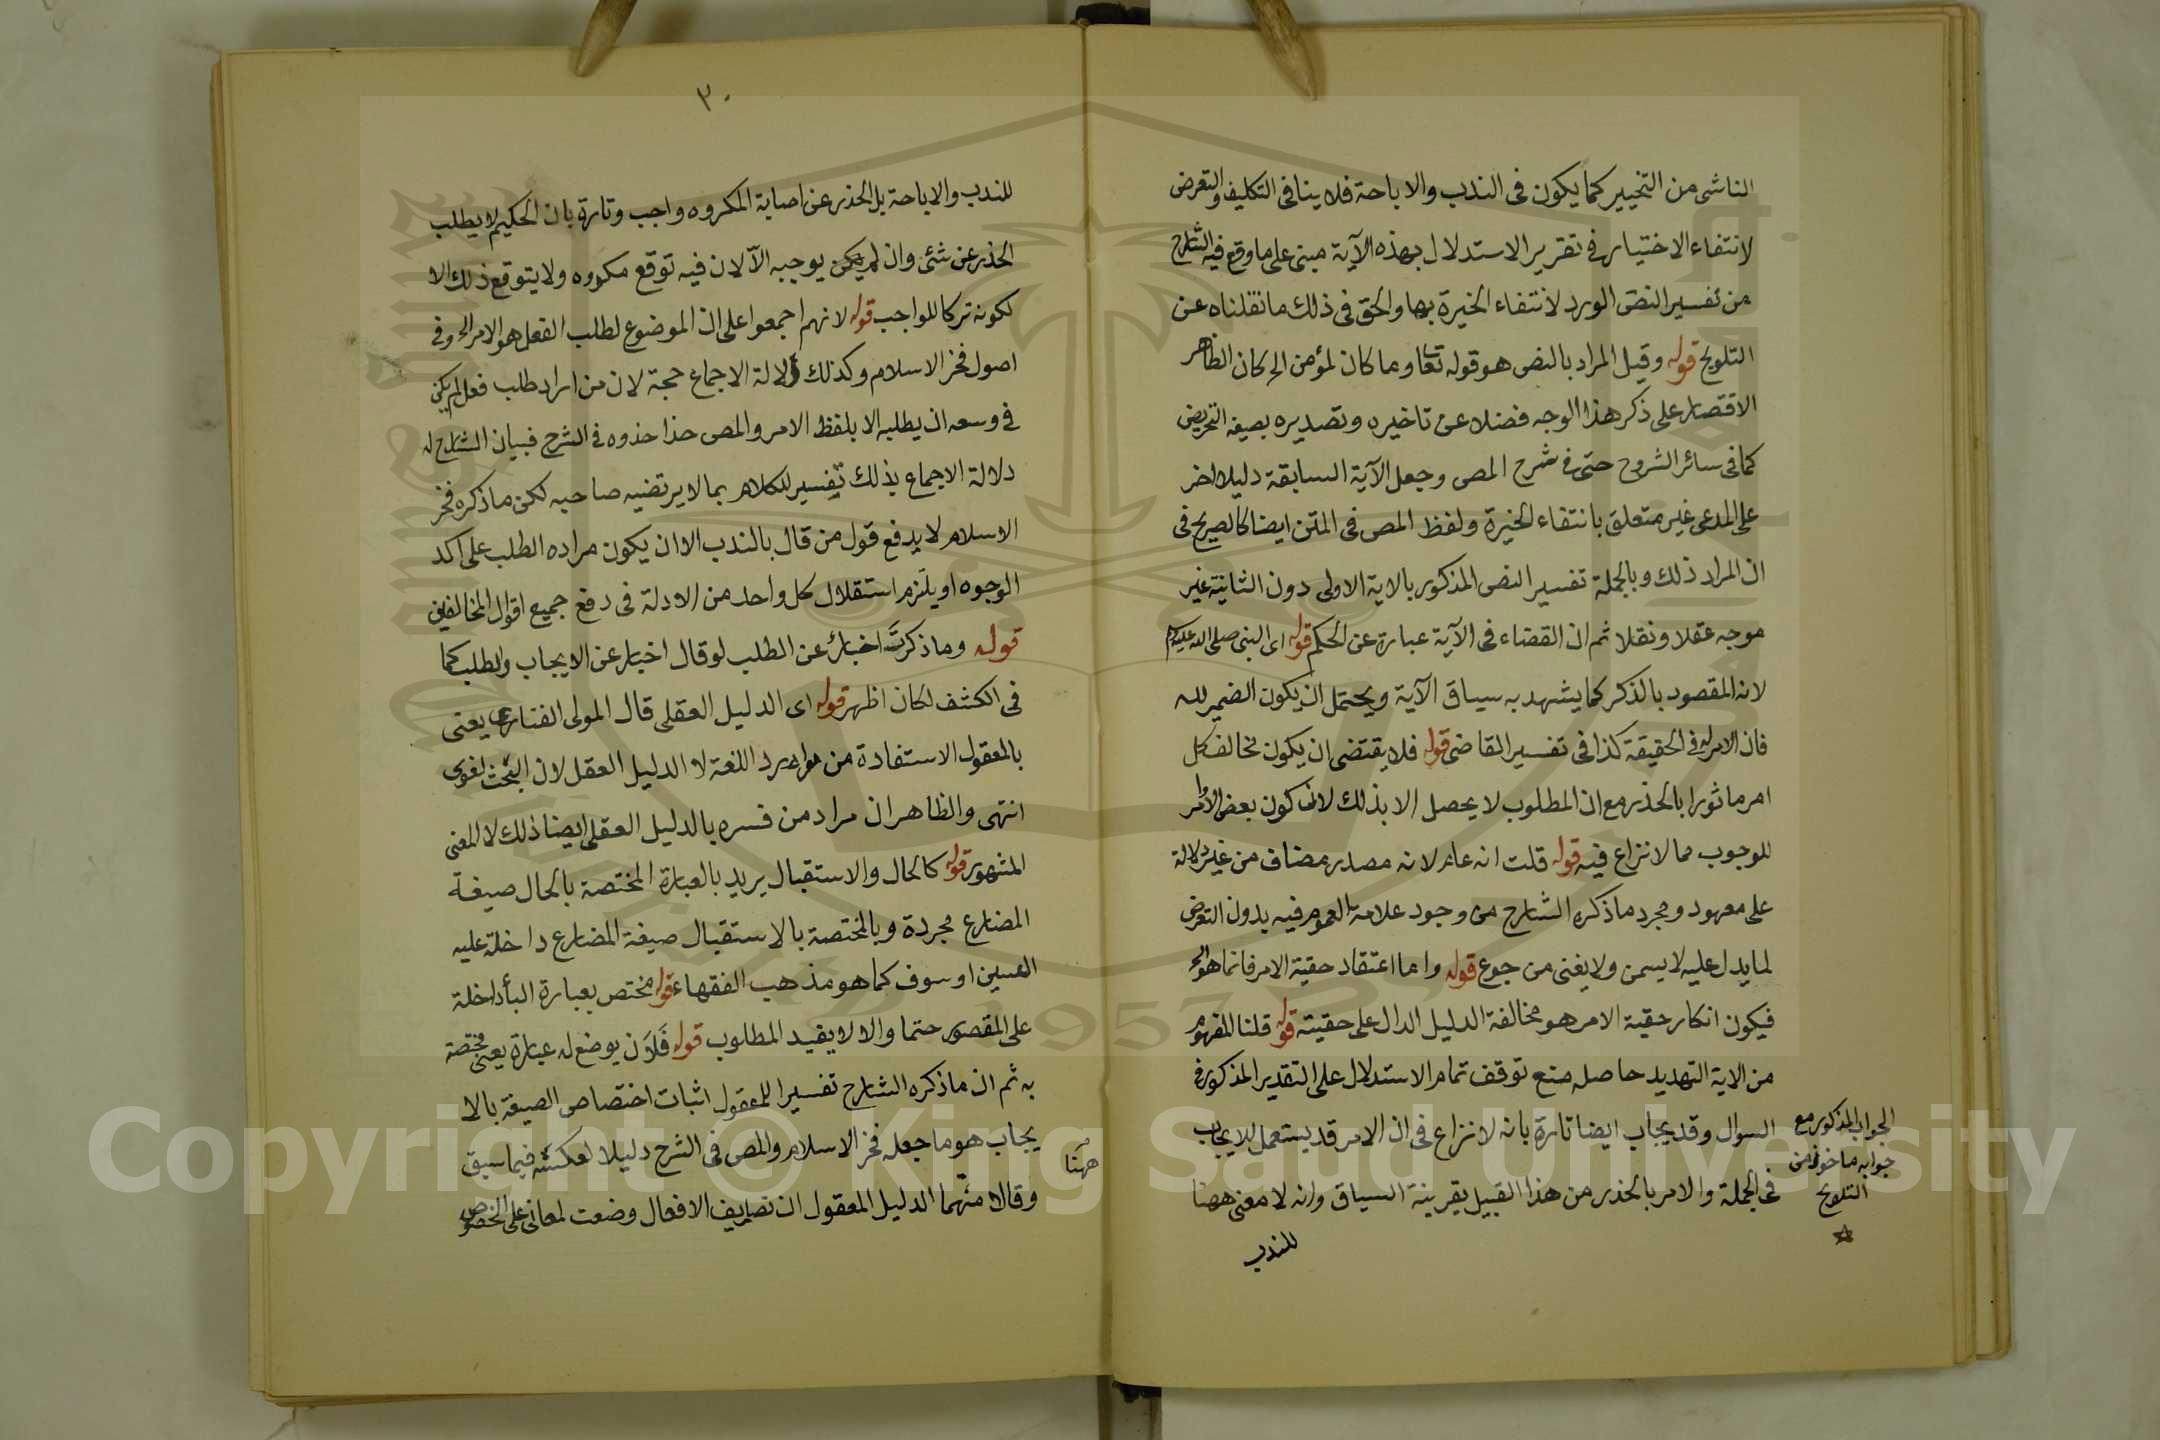 الناشى من التخيير كما يكون فى الندب والاباحة فلا ينافى التكليف والتعرض
لانتفاء الاختيار فى تقرير الاستدلال بهذه الآية مبنى على ما وقع فيه الشارح
من تفسير النص الورد لانتفاء الخيرة بها والحق فى ذلك ما نقلناه عن
التلويح قوله وقيل المراد بالنص هو قوله تعا وما كان لمؤمن الخ كان الظاهر
الاقتصار على ذكر هذا الوجه فضلا عن تاخيره وتصديره بصيغة التمريض
كما فى سائر الشروح حتى فى شرح المص وجعل الآية السابقة دليلا اخر
على المدعى غير متعلق بانتفاء الخيرة ولفظ المص فى المتن ايضا كالصريح فى
ان المراد ذلك وبالجملة تفسير النص المذكور بالاية الاولى دون الثانية غير
موجه عقلا ونقلا ثم ان القضاء فى الآية عبارة عن الحكم قوله اى النبى صلى الله عليه وسلم
لانه المقصود بالذكر كما يشهد به سياق الآية ويحتمل ان يكون الضمير لله
فان الامر له فى الحقيقة كذا فى تفسير القاضى قوله فلا يقتضى ان يكون مخالف كل
امر ماثورا بالحذر مع ان المطلوب لا يحصل الا بذلك لان كون بعض الاوامر
للوجوب مما لا نزاع فيه قوله قلت انه عام لانه مصدر مضاف من غير دلالة
على معهود ومجرد ما ذكره الشارح من وجود علامة العموم فيه بدون التعرض
لما يدل عليه لا يسمن ولا يغنى من جوع قوله واما اعتقاد حقية الامر فانما هو الخ
فيكون انكار حقية الامر هو مخالفة الدليل الدال على حقيته قوله قلنا المفهوم
من الاية التهديد حاصله منع توقف تمام الاستدلال على التقدير المذكور فى
السوال وقد يجاب ايضا تارة بانه لا نزاع فى ان الامر قد يستعمل للايجاب
فى الجملة والامر بالحذر من هذا القبيل بقرينة السياق وانه لا معنى ههنا
للندب
الجواب المذكور مع
جوابه ماخوذ من
التلويح
٣٠
للندب والاباحة بل الحذر عن اصابة المكروه واجب وتارة بان الحكيم لا يطلب
الحذر عن شئ وان لم يكن يوجبه الا لان فيه توقع مكروه ولا يتوقع ذلك الا
لكونه تركا للواجب قوله لانهم اجمعوا على ان الموضوع لطلب الفعل هو الامر الخ وفى
اصول فخر الاسلام وكذلك دلالة الاجماع حجة لان من اراد طلب فعل لم يكن
فى وسعه ان يطلبه الا بلفظ الامر والمص حذا حذوه فى الشرح فبيان الشارح له
دلالة الاجماع بذلك تفسير للكلام بما لا يرتضيه صاحبه لكن ما ذكره فخر
الاسلام لا يدفع قول من قال بالندب الا ان يكون مراده الطلب على اكد
الوجوه او يلزم استقلال كل واحد من الادلة فى دفع جميع اقوال المخالفين
قوله وما ذكرت اخبار عن الطلب لو قال اخبار عن الايجاب والطلب كما
فى الكشف لكان اظهر قوله اى الدليل العقلى قال المولى الفنارى يعنى
بالمعقول الاستفادة من موارد اللغة لا الدليل العقل لان البحث لغوى
انتهى والظاهر ان مراد من فسره بالدليل العقلى ايضا ذلك لا المعنى
المشهور قوله كالحال والاستقبال يريد بالعبارة المختصة بالحال صيغة
المضارع مجردة وبالمختصة بالاستقبال صيغة المضارع داخلة عليه
السين او سوف كما هو مذهب الفقهاء قوله مختص بعبارة الباء داخلة
على المقصور حتما والا لا يفيد المطلوب قوله فلان يوضع له عبارة يعنى مختصة
به ثم ان ما ذكره الشارح تفسيرا للمعقول اثبات اختصاص الصيغة بالا
يجاب هو ما جعله فخر الاسلام والمص فى الشرح دليلا لعكسه فيما سبق
وقالا منهما الدليل المعقول ان تصاريف الافعال وضعت لمعانى على الخصوص
ههنا
Copyright © King Saud University
1957